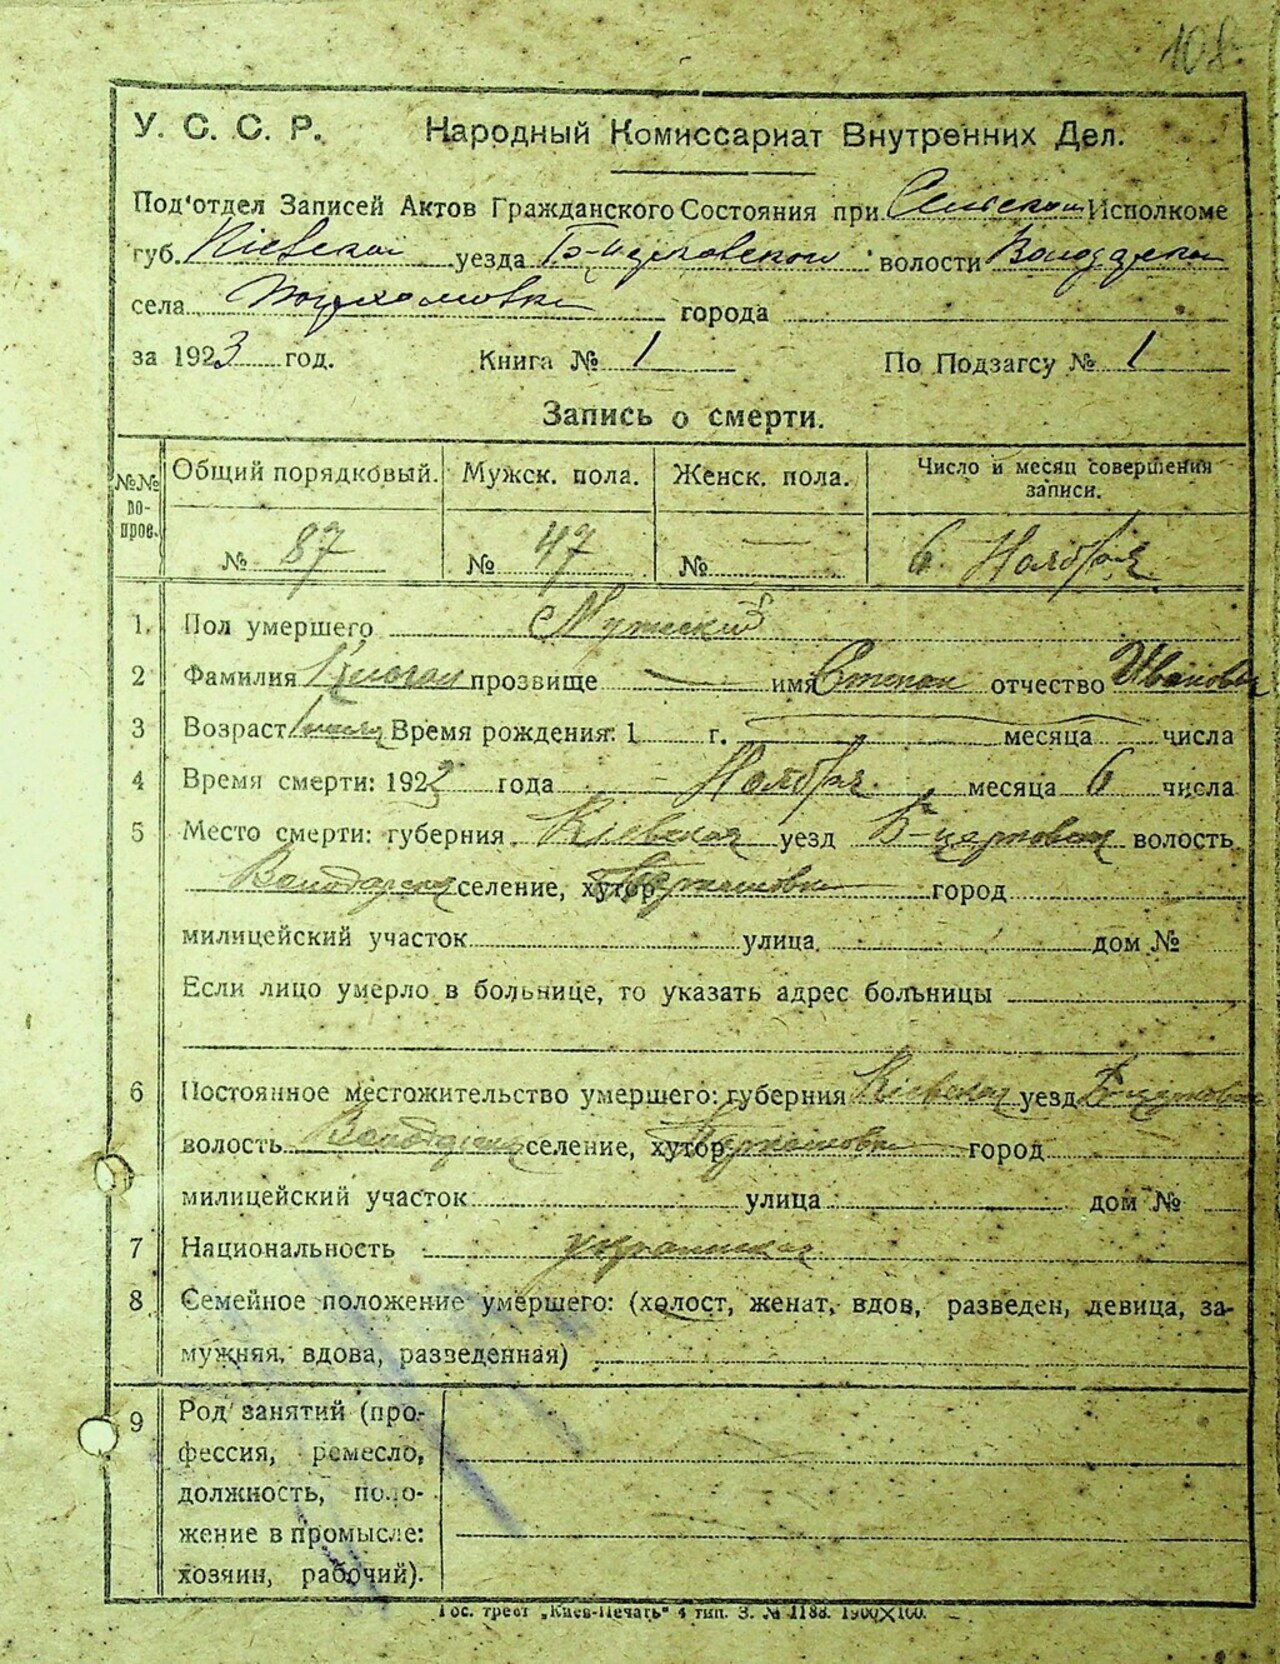 108.
У. С. С. Р. Народный Комиссариат Внутренних Дел.
Под'отдел Записей Актов Гражданского Состояния при Сельском Исполкоме
губ. Кіевской уезда Б-Церковской волости Володарской
села города
за 1923 год. Книга № 1 По Подзагсу № 1
Запись о смерти.
№№ вопрос. Общий порядковый. Мужск. пола. Женск. пола. Число и месяц совершения записи.
№ 87 № 47 № — 6 Ноября
1. Пол умершего Мужский
2 Фамилия прозвище — имя Степан отчество Иванович
3 Возраст Время рождения: 1 г. месяца числа
4 Время смерти: 1923 года Ноября месяца 6 числа
5 Место смерти: губерния Кіевская уезд Б-церковск волость
Володарская селение, хутор город
милицейский участок улица дом №
Если лицо умерло в больнице, то указать адрес больницы
6 Постоянное местожительство умершего: губерния Кіевская уезд Б-церковск
волость Володарская селение, хутор город
милицейский участок улица дом №
7 Национальность украинская
8 Семейное положение умершего: (холост, женат, вдов, разведен, девица, за-
мужняя, вдова, разведенная)
9 Род занятий (про-
фессия, ремесло,
должность, поло-
жение в промысле:
хозяин, рабочий).
Гос. трест „Киев-Печать" 4 тип. З. № 1188. 1900X100.